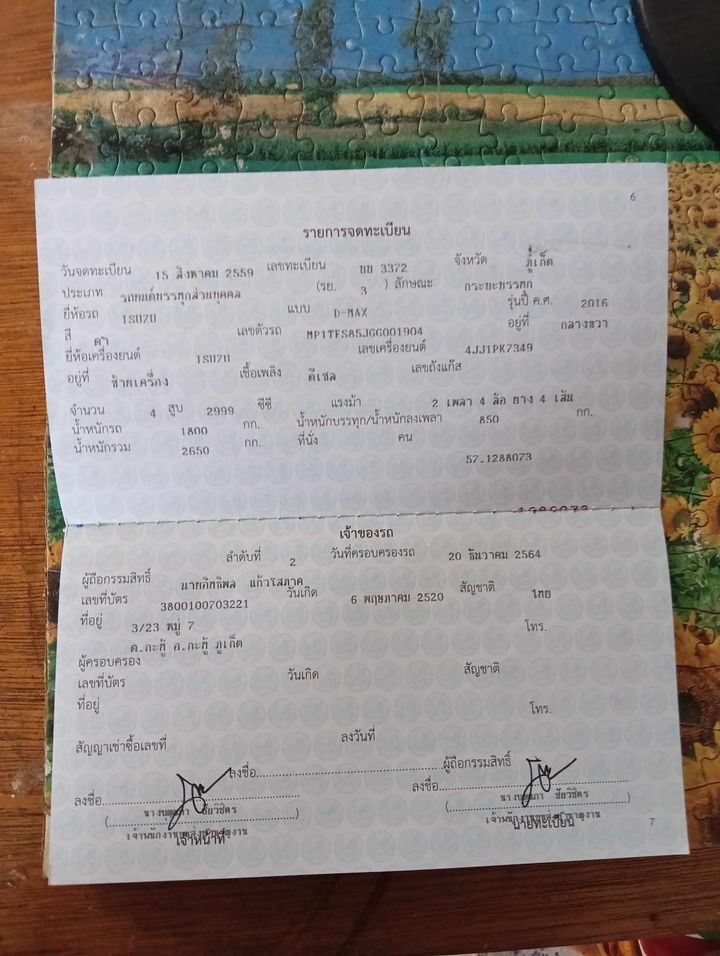 6
รายการจดทะเบียน
วันจดทะเบียน 15 สิงหาคม 2559 เลขทะเบียน 3372 จังหวัด ภูเก็ต
ประเภท รถยนต์บรรทุกส่วนบุคคล (รย. 3 ) ลักษณะ กระบะบรรทุก
ยี่ห้อรถ ISUZU แบบ D-MAX รุ่นปี ค.ศ. 2016
สี ดำ เลขตัวรถ MP1TFS85JGG001904 อยู่ที่ กลางขวา
ยี่ห้อเครื่องยนต์ ISUZU เลขเครื่องยนต์ 4JJ1PK7349
อยู่ที่ ซ้ายเครื่อง เชื้อเพลิง ดีเซล เลขถังแก๊ส
จำนวน 4 สูบ 2999 ซีซี แรงม้า 2 เพลา 4 ล้อ ยาง 4 เส้น
น้ำหนักรถ 1800 กก. น้ำหนักบรรทุก/น้ำหนักลงเพลา 850 กก.
น้ำหนักรวม 2650 กก. ที่นั่ง คน
57.1288073
เจ้าของรถ
ลำดับที่ 2 วันที่ครอบครองรถ 20 ธันวาคม 2564
ผู้ถือกรรมสิทธิ์ นายอิทธิพล แก้วโสภาค
เลขที่บัตร 3800100703221 วันเกิด 6 พฤษภาคม 2520 สัญชาติ ไทย
ที่อยู่ 3/23 หมู่ 7 โทร.
ต.กะทู้ อ.กะทู้ ภูเก็ต
ผู้ครอบครอง
เลขที่บัตร วันเกิด สัญชาติ
ที่อยู่ โทร.
สัญญาเช่าซื้อเลขที่ ลงวันที่
ลงชื่อ ผู้ถือกรรมสิทธิ์
ลงชื่อ ลงชื่อ
( ชัยวิชิตร ) ( ชัยวิชิตร )
เจ้าหน้าที่ นายทะเบียน
7